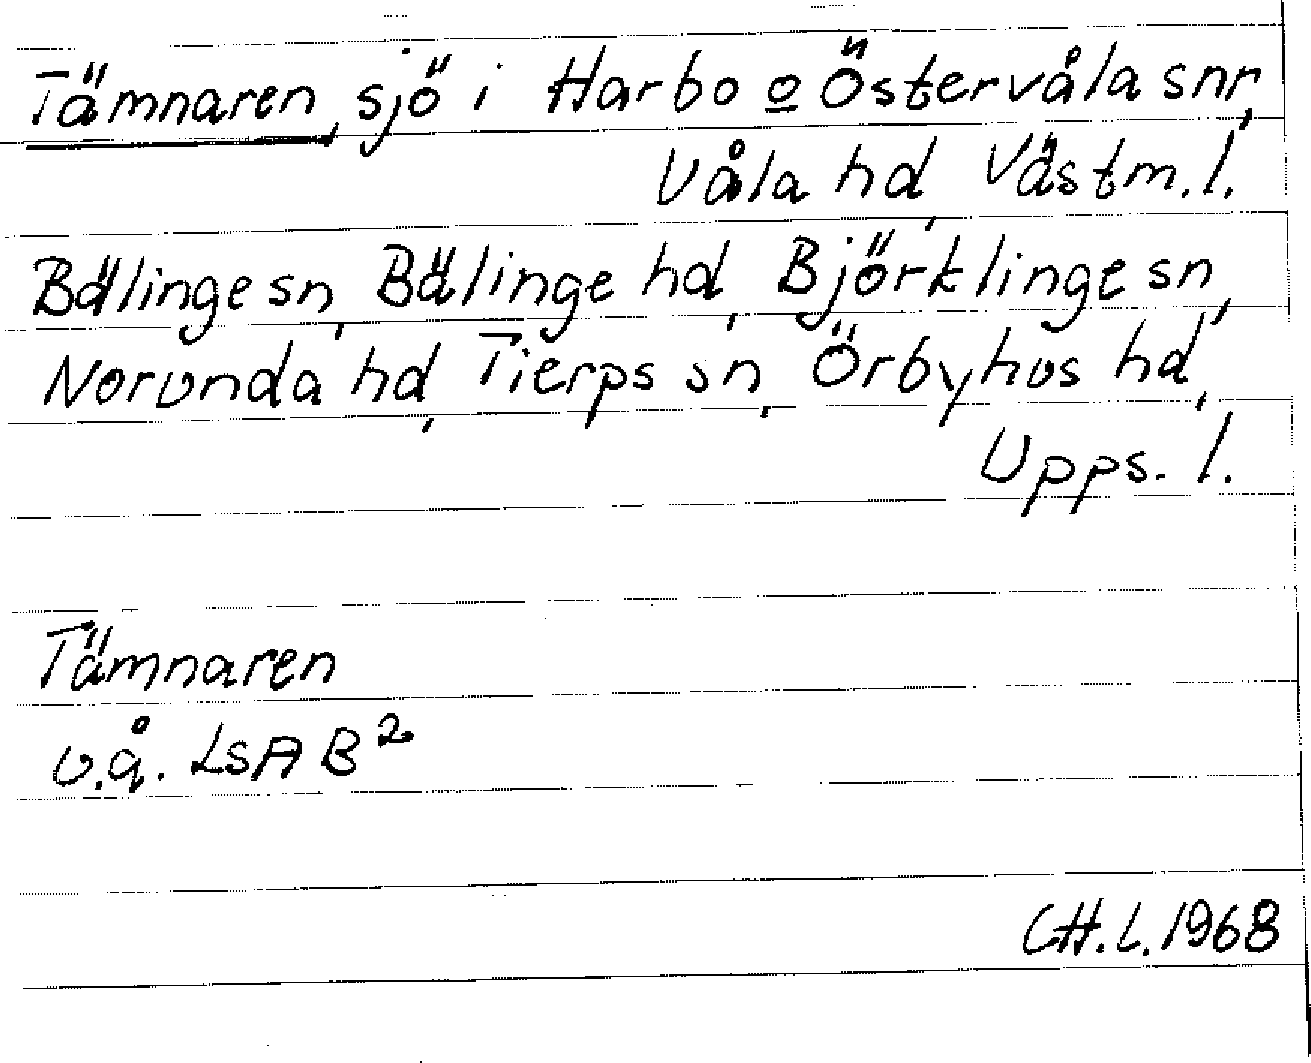 Tämnaren, sjö i Harbo o Östervåla snr,
Våla hd, Västm. l.
Bälinge sn, Bälinge hd, Björklinge sn,
Norunda hd, Tierps sn, Örbyhus hd,
Upps. l.
Tämnaren
u.å. LSA B²
CH.L. 1968